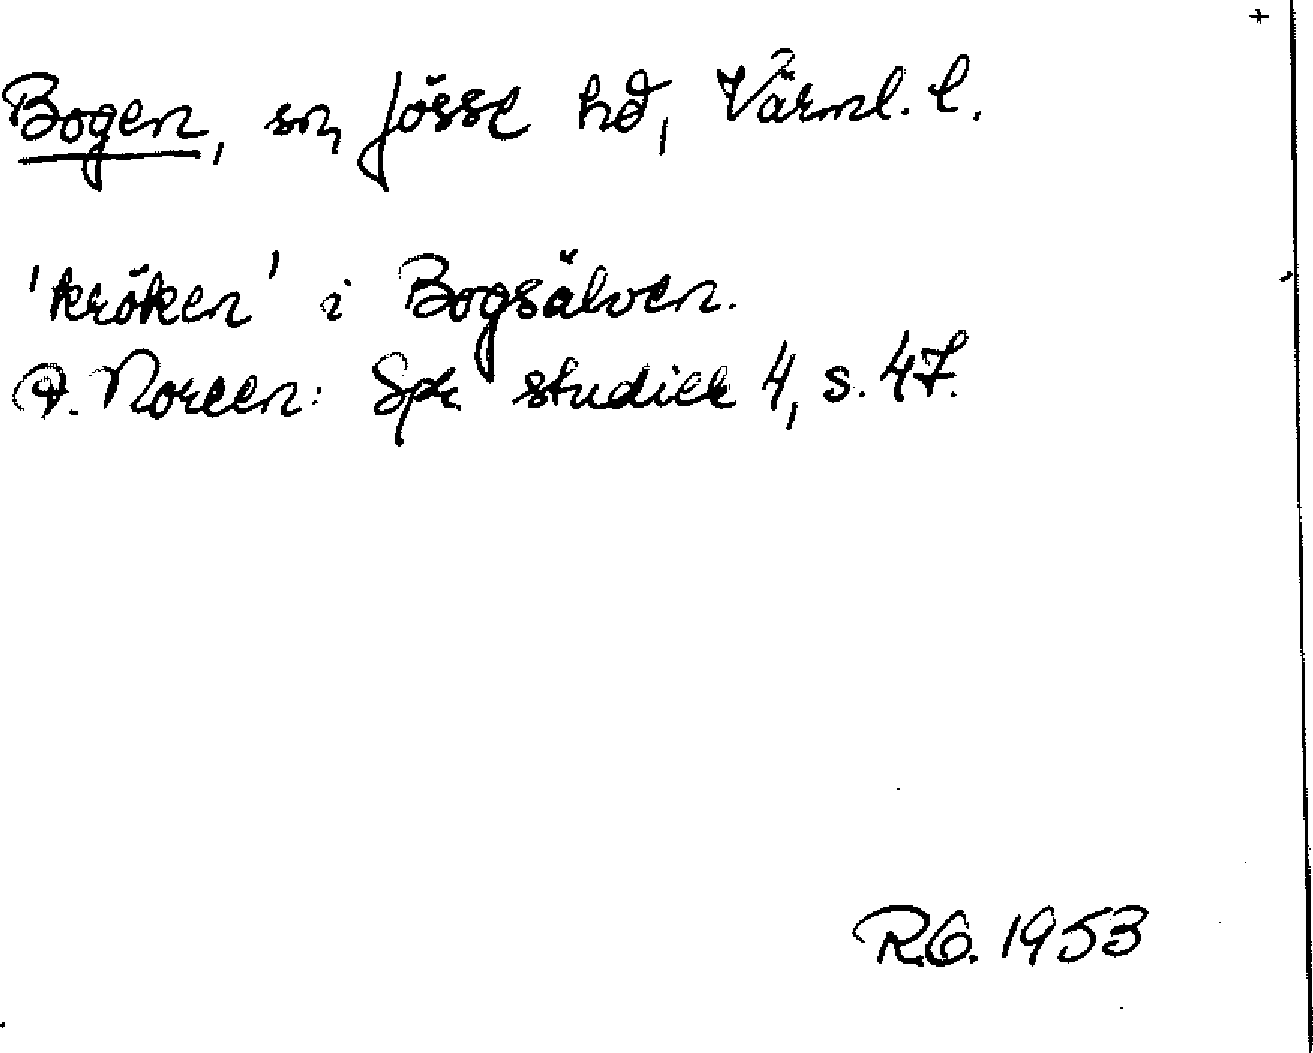 Bogen, sn, Jösse hd, Värml. l.
'kröken' i Bogsälven.
A. Noreen: Spr. studier 4, s. 47.
R.O. 1953